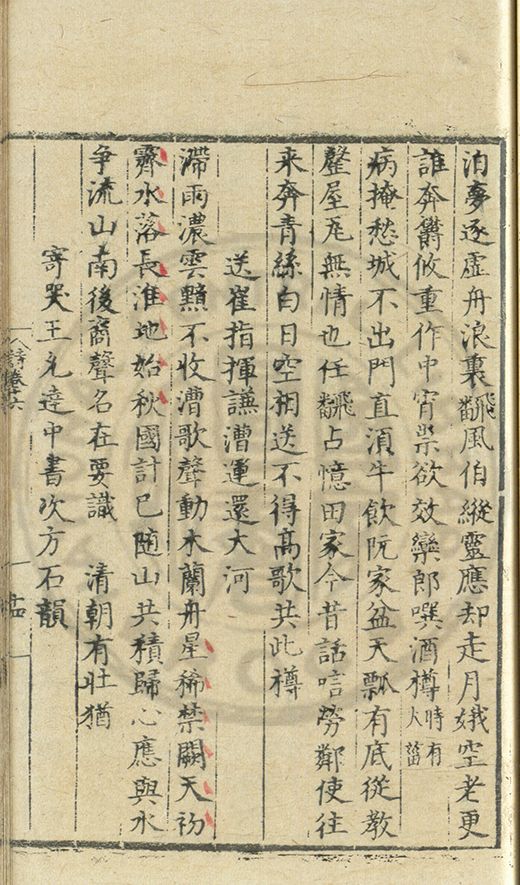 泊夢逐虛舟浪裏飜風伯縱靈應却走月娥空老更
誰奔欝攸重作中宵祟欲效欒郎噀酒樽時有火菑
病掩愁城不出門直湏牛飲阮家盆天瓢有底從教
罄屋瓦無情也任飜占憶田家今昔話唁勞鄭使往
来奔青絲白日空相送不得高歌共此樽
送崔指揮謙漕運還大河
滯雨濃雲黯不收漕歌聲動木蘭舟星稀禁闕天初
霽水落長淮地始秋國計已随山共積歸心應與水
争流山南後裔聲名在要識 清朝有壮猶
寄哭王允達中書次方石韻
詩卷六
十四